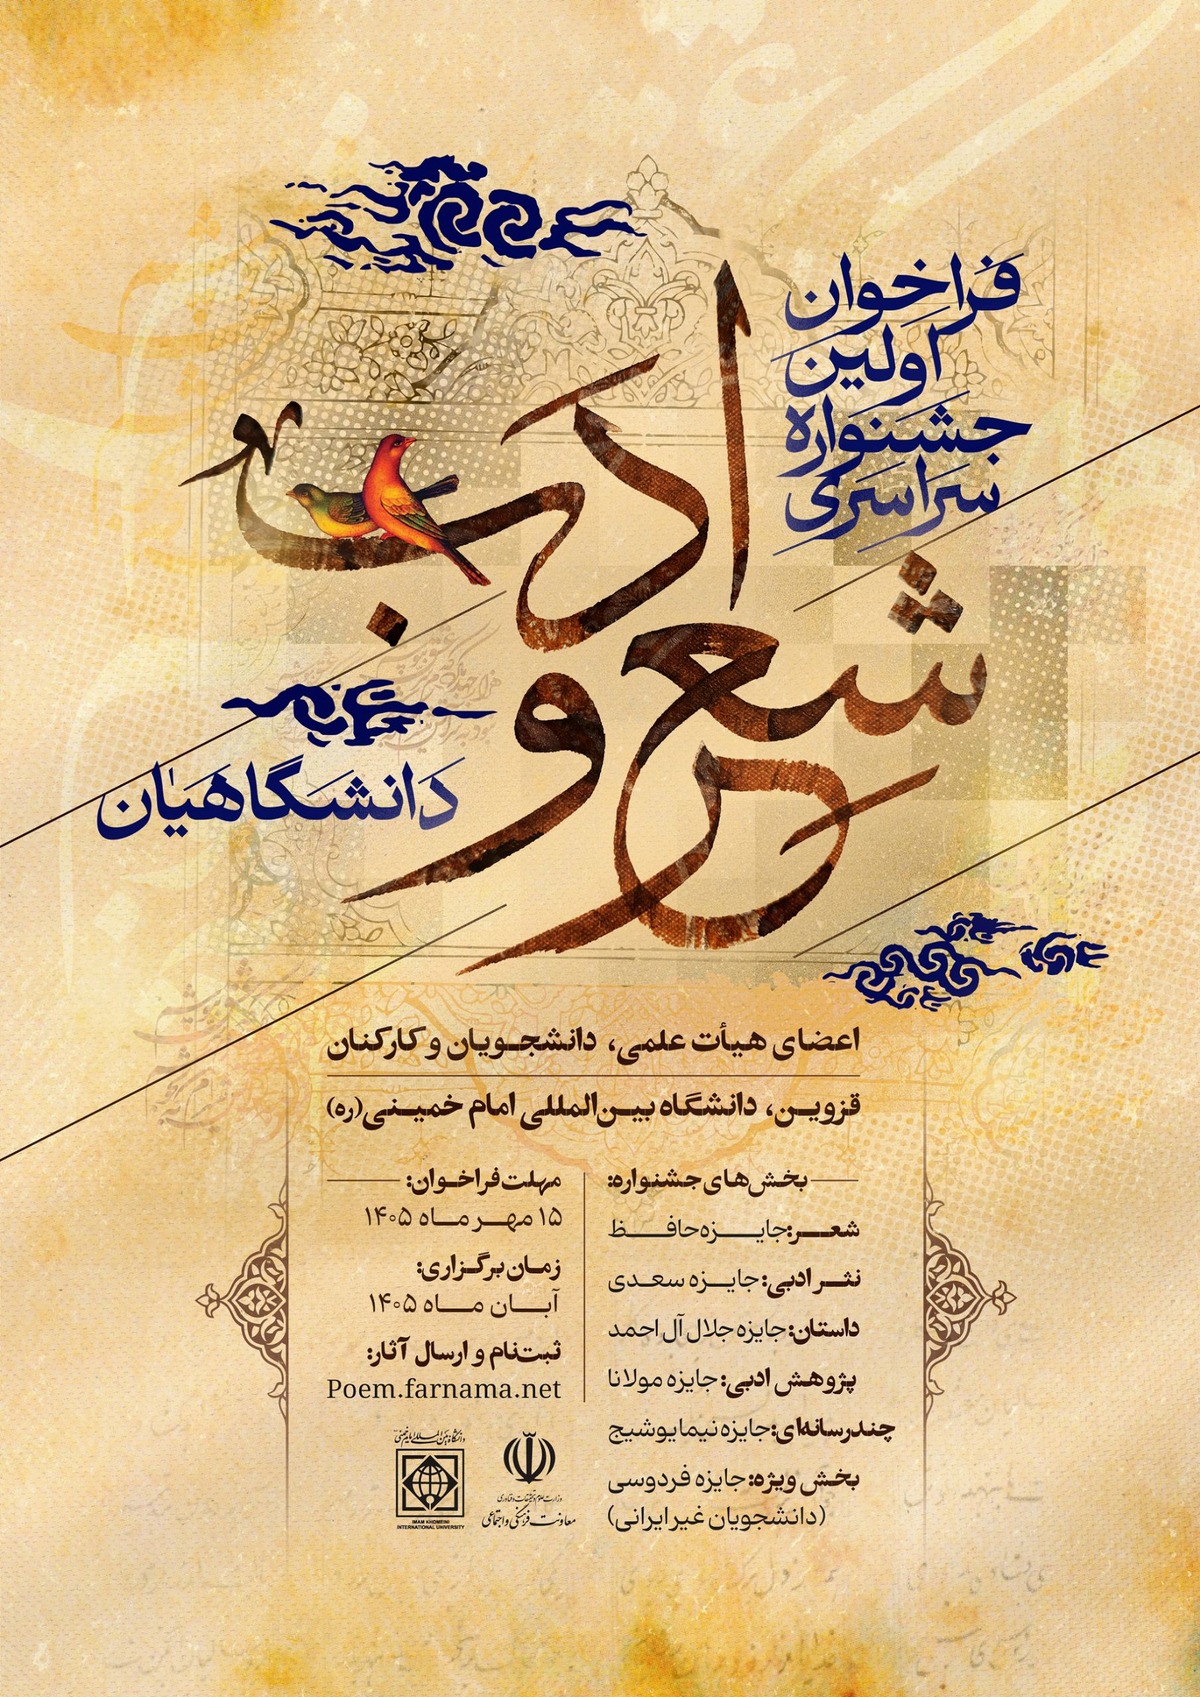 فراخوان
اولین
جشنواره
سراسری
شعر
و
ادب
دانشگاهیان
اعضای هیأت علمی، دانشجویان و کارکنان
قزوین، دانشگاه بین‌المللی امام خمینی(ره)
بخش‌های جشنواره:
شعر: جایزه حافظ
نثر ادبی: جایزه سعدی
داستان: جایزه جلال آل احمد
پژوهش ادبی: جایزه مولانا
چندرسانه‌ای: جایزه نیما یوشیج
بخش ویژه: جایزه فردوسی
(دانشجویان غیر ایرانی)
مهلت فراخوان:
۱۵ مهر ماه ۱۴۰۵
زمان برگزاری:
آبان ماه ۱۴۰۵
ثبت‌نام و ارسال آثار:
Poem.farnama.net
وزارت علوم، تحقیقات و فناوری
معاونت فرهنگی و اجتماعی
دانشگاه بین‌المللی امام خمینی
IMAM KHOMEINI
INTERNATIONAL UNIVERSITY